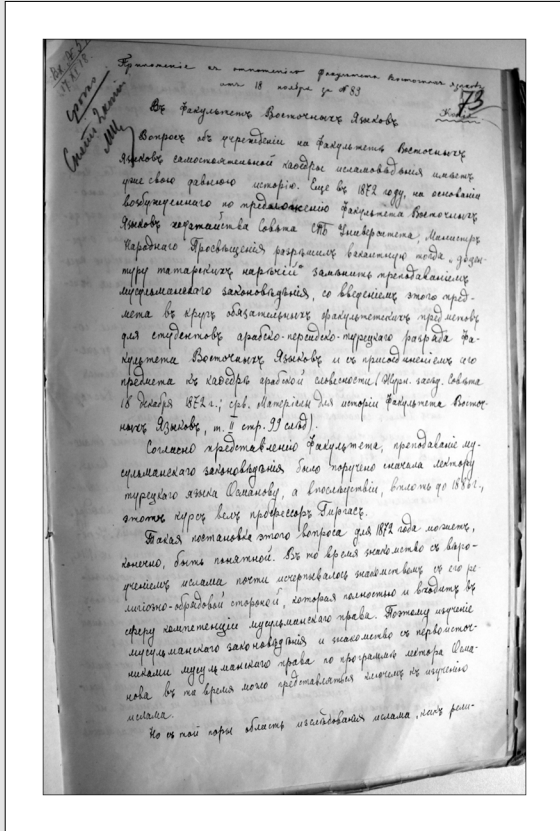 Приложение къ отношенію Факультета Восточныхъ языковъ
отъ 18 ноября за № 89
73
срочно
Въ Факультетъ Восточныхъ Языковъ
Вопросъ объ учрежденіи на Факультетѣ Восточныхъ
Языковъ самостоятельной каѳедры исламовѣдѣнія имѣетъ
уже свою давнюю исторію. Еще въ 1872 году, на основаніи
возбужденнаго по предложенію Факультета Восточныхъ
Языковъ ходатайства Совѣта СПБ Университета, Министръ
Народнаго Просвѣщенія разрѣшилъ вакантную тогда „доцен-
туру татарскихъ нарѣчій“ замѣнить преподаваніемъ
мусульманскаго законовѣдѣнія, со введеніемъ этого пред-
мета въ кругъ обязательныхъ факультетскихъ предметовъ
для студентовъ арабско-персидско-турецкаго разряда Фа-
культета Восточныхъ Языковъ и съ присоединеніемъ его
предмета къ каѳедрѣ арабской словесности (Журн. засѣд. Совѣта
18 декабря 1872 г.; срв. Матеріалы для исторіи Факультета Восточ-
ныхъ Языковъ, т. II стр. 99 слѣд).
Согласно представленію Факультета, преподаваніе му-
сульманскаго законовѣдѣнія было поручено сначала лектору
турецкаго языка Османову, а впослѣдствіи, вплоть до
этотъ курсъ велъ профессоръ Гиргасъ.
Такая постановка этого вопроса для 1872 года можетъ,
конечно, быть понятной. Въ то время знакомство съ вѣро-
ученіемъ ислама почти исчерпывалось знакомствомъ съ его ре-
лигіозно-обрядовой стороной, которая полностью и входитъ въ
сферу компетенціи мусульманскаго права. Поэтому изученіе
мусульманскаго законовѣдѣнія и знакомство съ первоисточ-
никами мусульманскаго права по программѣ лектора Осма-
нова въ то время могло представляться ключемъ къ изученію
ислама.
Но съ той поры область изслѣдованія ислама, какъ рели-